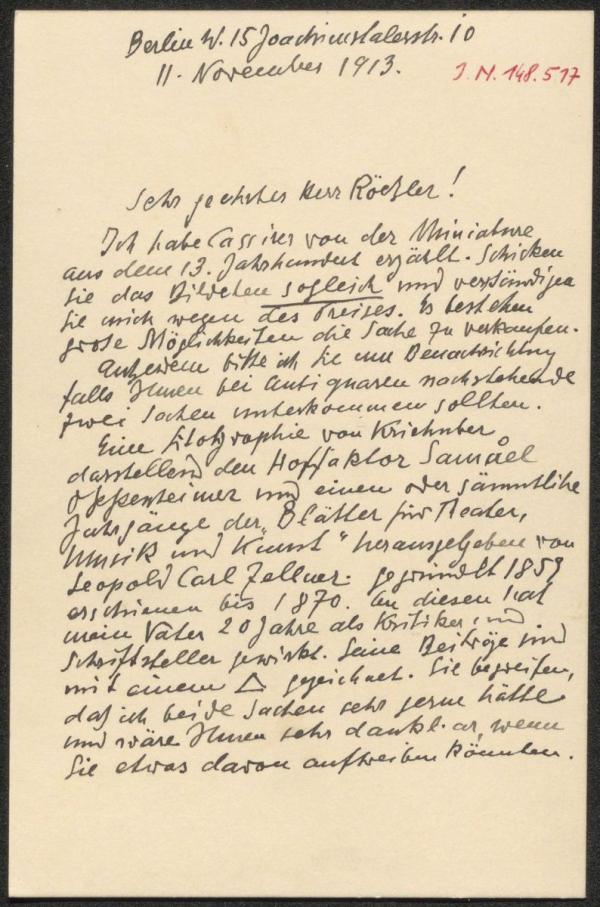 Berlin W. 15 Joachimstalerstr. 10
11. November 1913.
I. N. 148.517
Sehr geehrter Herr Röttler!
Ich habe Cassirer von der Miniature
aus dem 13. Jahrhundert erzählt. Schicken
Sie das Bildchen sogleich und verständigen
Sie mich wegen des Preises. Es bestehen
grose Möglichkeiten die Sache zu verkaufen.
Außerdem bitte ich Sie um Benachrichtung
falls Ihnen bei Antiquaren nachstehende
zwei Sachen unterkommen sollten.
Eine Litographie von Kriehuber
darstellend den Hoffaktor Samuel
Oppenheimer und einen oder sämmtliche
Jahrgänge der „Blätter für Theater,
Musik und Kunst" herausgegeben von
Leopold Carl Zellner. gegründet 1859
erschienen bis 1870. An diesen hat
mein Vater 20 Jahre als Kritiker und
Schriftsteller gewirkt. Seine Beiträge sind
mit einem △ gezeichnet. Sie begreifen,
daß ich beide Sachen sehr gerne hätte
und wäre Ihnen sehr dankbar, wenn
Sie etwas davon auftreiben könnten.